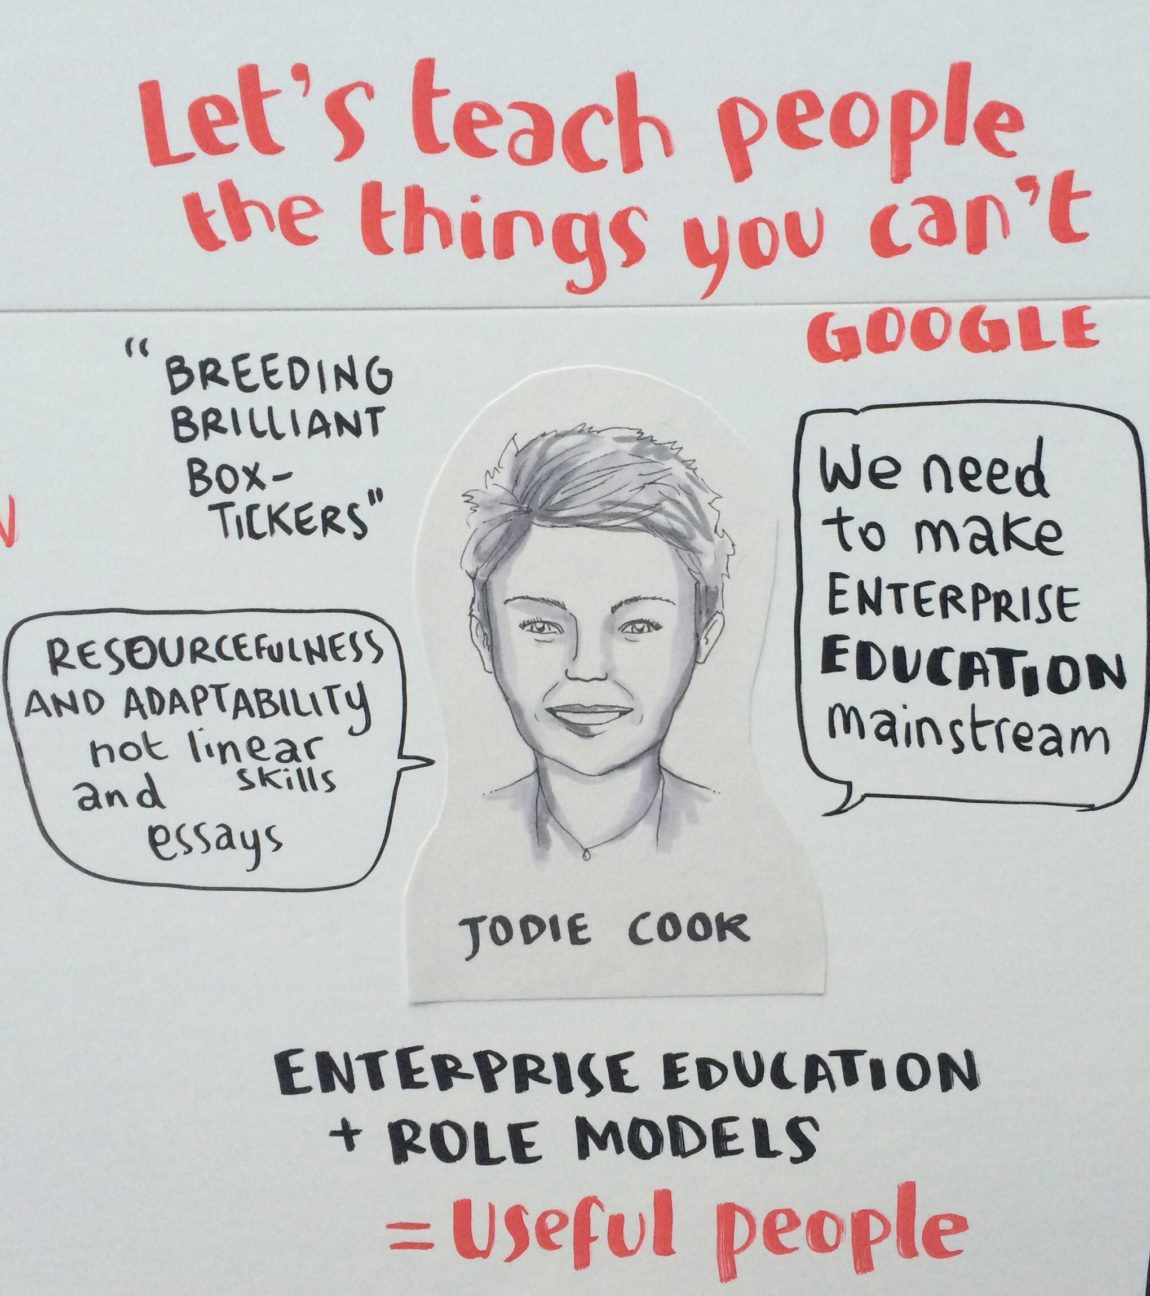 Let's teach people
the things you can't
GOOGLE
"BREEDING
BRILLIANT
BOX-
TICKERS"
We need
to make
ENTERPRISE
EDUCATION
mainstream
RESOURCEFULNESS
AND ADAPTABILITY
not linear
and skills
essays
JODIE COOK
ENTERPRISE EDUCATION
+ ROLE MODELS
= Useful people